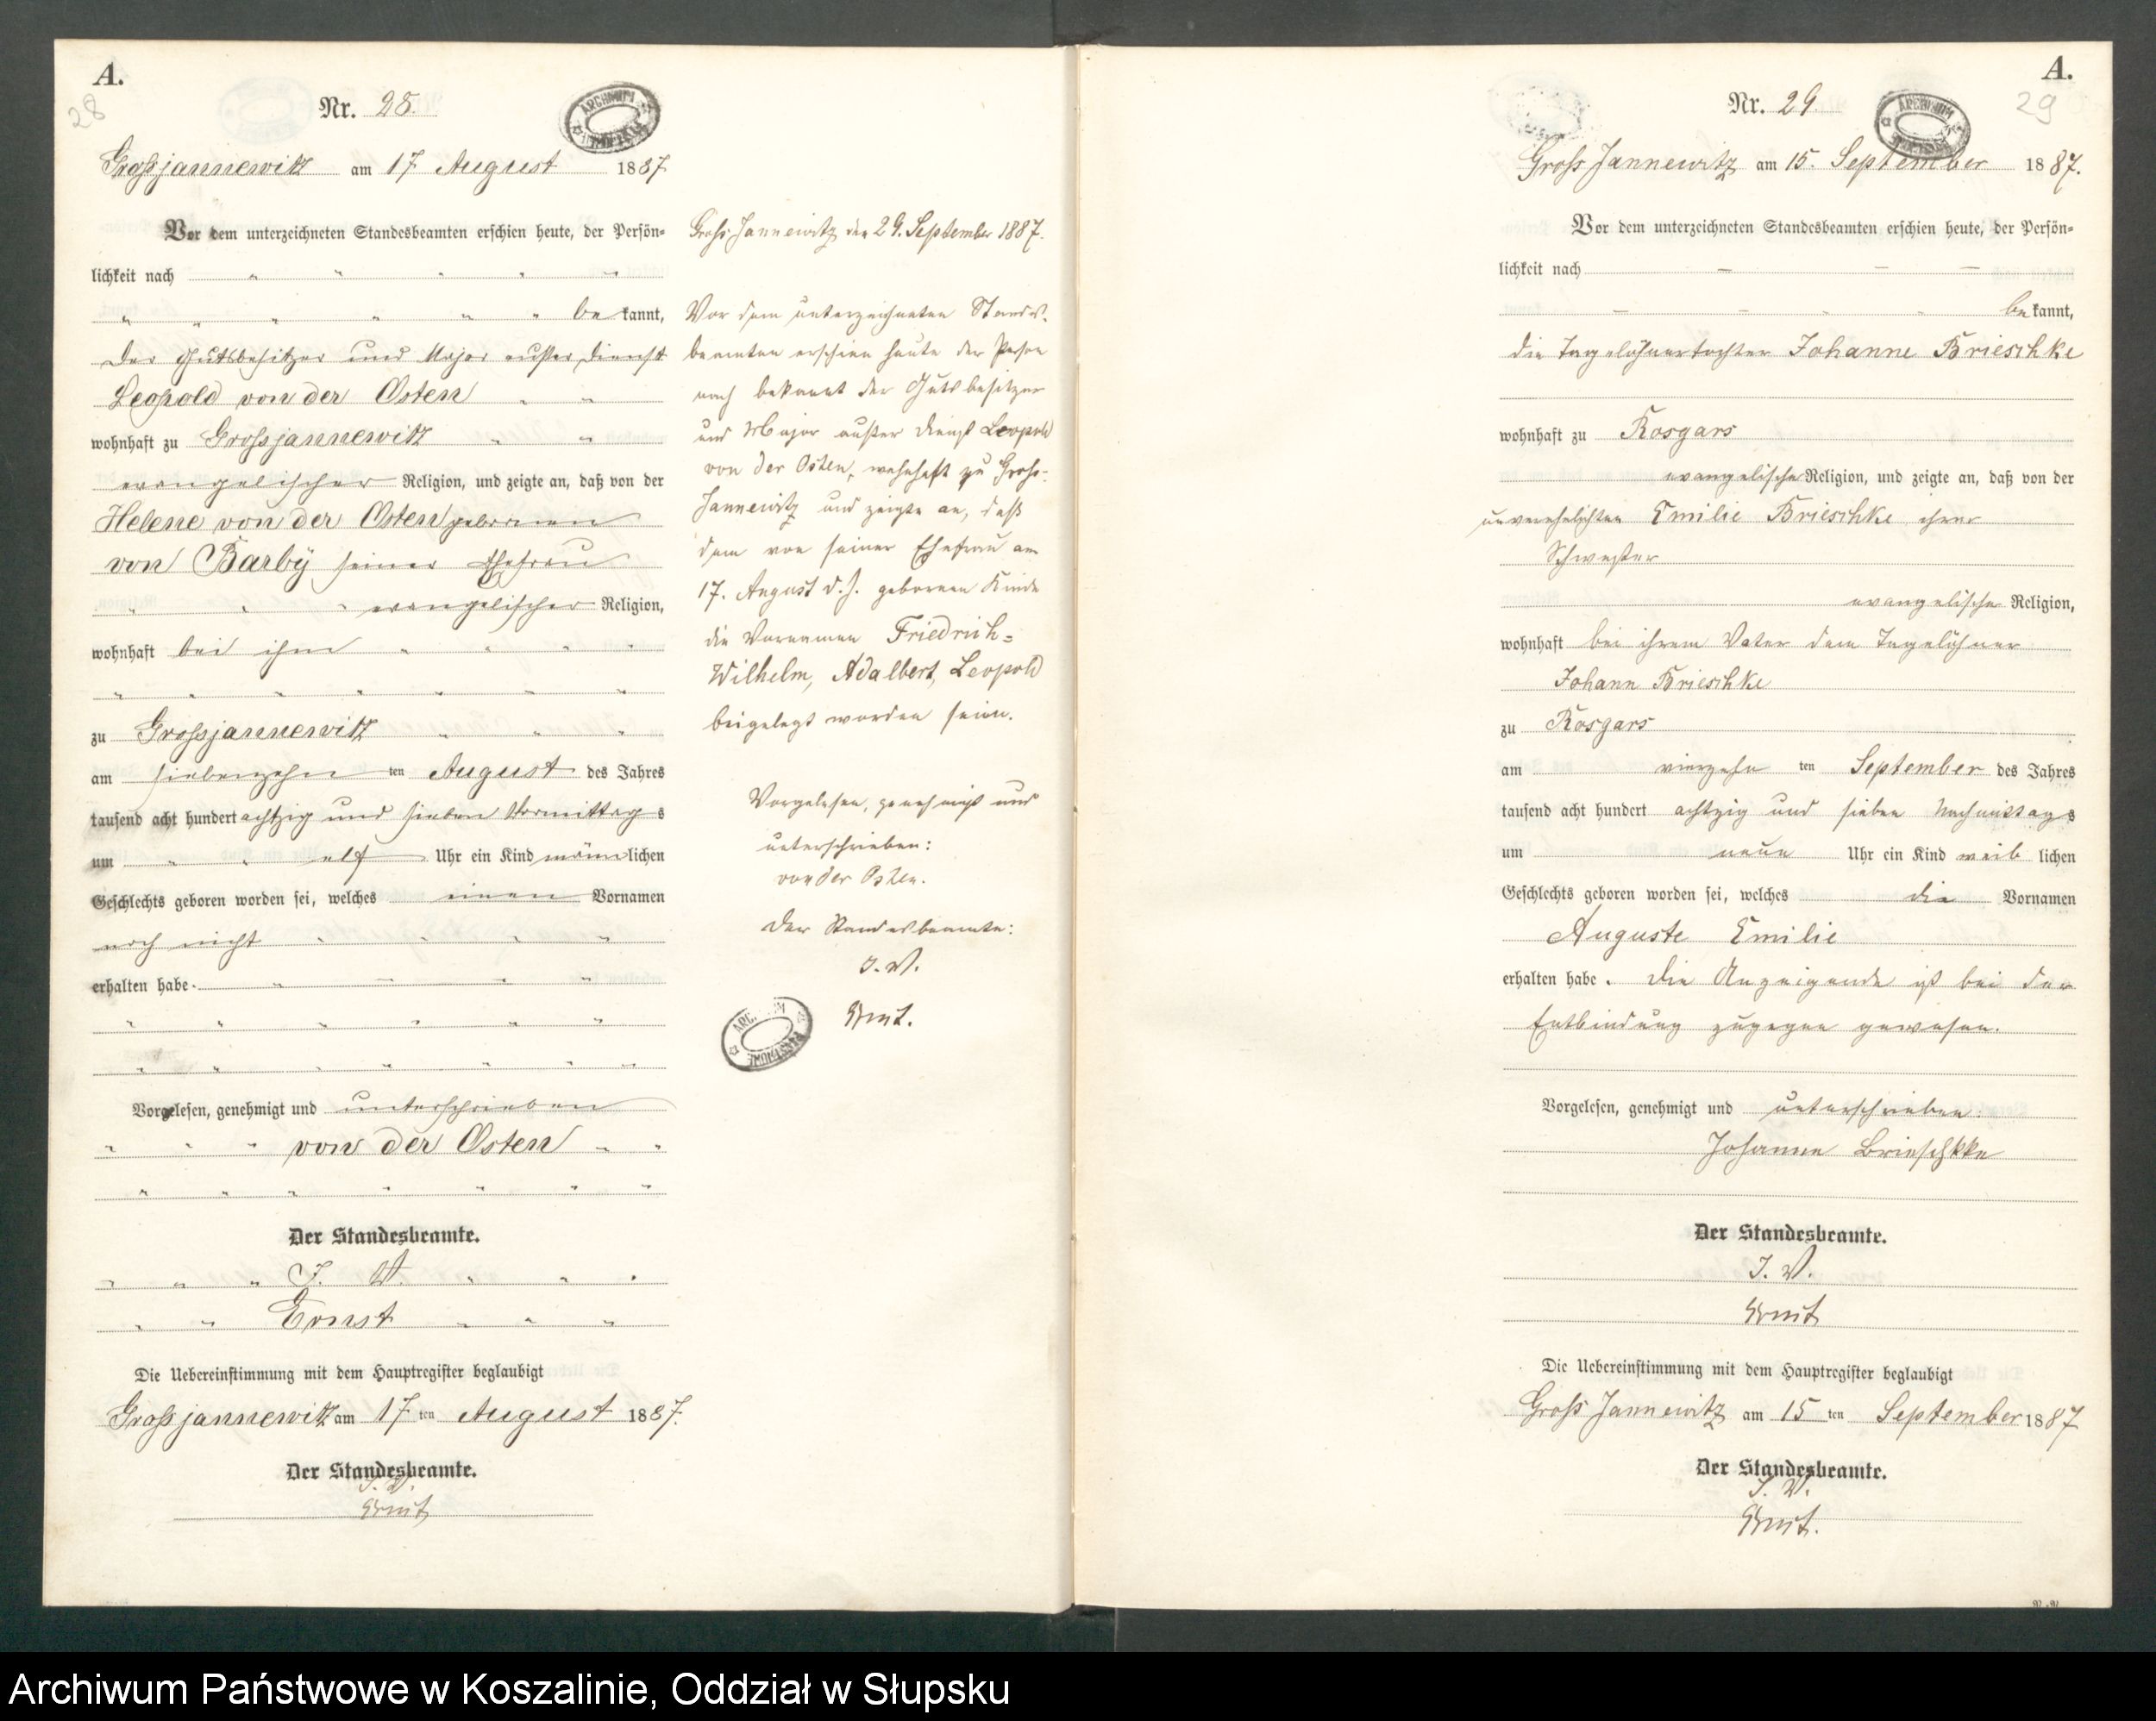 A.
28
Nr. 28.
Grossjannewitz am 17 August 1887
Vor dem unterzeichneten Standesbeamten erschien heute, der Persön-
lichkeit nach
be kannt,
der Gutsbesitzer und Major ausser Dienst
Leopold von der Osten
wohnhaft zu Grossjannewitz
evangelischer Religion, und zeigte an, daß von der
Helene von der Osten gebornen
von Barby seiner Ehefrau
evangelischer Religion,
wohnhaft bei ihm
zu Grossjannewitz
am siebenzehn ten August des Jahres
tausend acht hundert achtzig und sieben Vormittag s
um elf Uhr ein Kind männ lichen
Geschlechts geboren worden sei, welches einen Vornamen
noch nicht
erhalten habe.
Vorgelesen, genehmigt und unterschrieben
von der Osten
Der Standesbeamte.
I. V.
Ernst
Die Uebereinstimmung mit dem Hauptregister beglaubigt
Grossjannewitz am 17 ten August 1887.
Der Standesbeamte.
I. V.
Ernst
Gross Jannewitz den 29. September 1887.
Vor dem unterzeichneten Standes-
beamten erschien heute der Person
nach bekannt der Gutsbesitzer
und Major außer Dienst Leopold
von der Osten, wohnhaft zu Gross-
Jannewitz und zeigte an, daß
dem von seiner Ehefrau am
17. August d. J. gebornen Kinde
die Vornamen Friedrich-
Wilhelm, Adalbert, Leopold
beigelegt worden seien.
Vorgelesen, genehmigt und
unterschrieben:
von der Osten.
Der Standesbeamte:
I. V.
Ernst.
A.
29
Nr. 29
Gross Jannewitz am 15. September 1887.
Vor dem unterzeichneten Standesbeamten erschien heute, der Persön-
lichkeit nach
be kannt,
die Tagelöhnertochter Johanne Brieschke
wohnhaft zu Rosgars
evangelische Religion, und zeigte an, daß von der
unverehelichten Emilie Brieschke ihrer
Schwester
evangelische Religion,
wohnhaft bei ihrem Vater dem Tagelöhner
Johann Brieschke
zu Rosgars
am vierzehn ten September des Jahres
tausend acht hundert achtzig und sieben Nachmittag s
um neun Uhr ein Kind weib lichen
Geschlechts geboren worden sei, welches die Vornamen
Auguste Emilie
erhalten habe. Die Anzeigende ist bei der
Entbindung zugegen gewesen.
Vorgelesen, genehmigt und unterschrieben.
Johanne Brieschkke
Der Standesbeamte.
I. V.
Ernst
Die Uebereinstimmung mit dem Hauptregister beglaubigt
Gross Jannewitz am 15 ten September 1887
Der Standesbeamte.
I. V.
Ernst.
Archiwum Państwowe w Koszalinie, Oddział w Słupsku